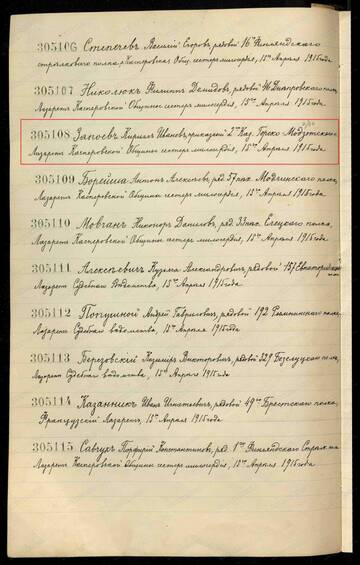 305106 Степочевъ Василій Егоровъ, рядовой 16го Финляндскаго
стрѣлковаго полка, Касперовск. Общ. сестеръ милосердія, 15го Апрѣля 1915 года
305107 Николюкъ Филиппъ Демидовъ, рядовой Днѣпровскаго полка
Лазаретъ Касперовской Общины сестеръ милосердія, 15го Апрѣля 1915 года.
305108 Запоевъ Кириллъ Ивановъ, приказный 2го Кав. Горско-Моздокскаго
Лазаретъ Касперовской Общины сестеръ милосердія, 15го Апрѣля 1915 года
305109 Борейша Антонъ Алексѣевъ, ряд. 57 пах. Модлинскаго полка,
Лазаретъ Касперовской Общины сестеръ милосердія, 15го Апрѣля 1915 года.
305110 Мовганъ Никоноръ Даниловъ, ряд. 33 пѣх. Елецкаго полка,
Лазаретъ Касперовской Общины сестеръ милосердія, 15го Апрѣля 1915 года
305111 Алексѣевичъ Кузьма Александровичъ, рядовой
Лазаретъ Судебнаго Вѣдомства, 15го Апрѣля 1915 года.
305112 Андрей Гавриловъ, рядовой 192 полка,
Лазаретъ Судебнаго вѣдомства, 15го Апрѣля 1915 года.
305113 Березовскій Казимиръ Викторовичъ, рядовой 329 Бузулуцк. полка,
Лазаретъ Судебнаго вѣдомства, 15го Апрѣля 1915 года
305114 Казанникъ Иванъ Игнатьевичъ, рядовой 49го Брестскаго полка,
Французскій Лазаретъ, 15го Апрѣля 1915 года.
305115 Савчукъ Порфирій Константиновъ, ряд. 1го Финляндскаго Стрѣлк.
Лазаретъ Касперовской Общины сестеръ милосердія, 15го Апрѣля 1915 года